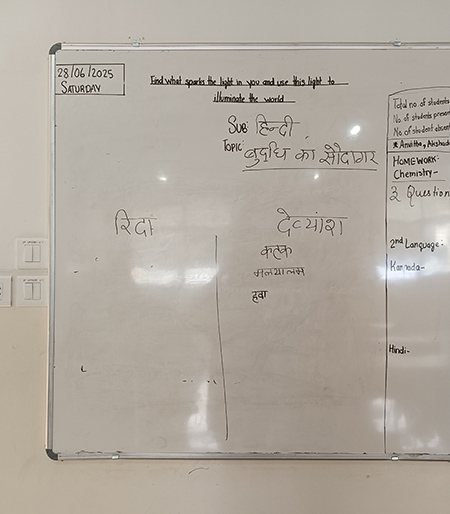 28/06/2025
SATURDAY
Find what sparks the light in you and use this light to
illuminate the world
SUB: हिन्दी
TOPIC: बुद्धि का सौदागर
रिदा
देव्यांश
कत्क
मलयालम
हवा
Total no. of students
No. of students presen
No. of student absent
HOMEWORK:
Chemistry-
3 Question
2nd Language:
Kannada-
Hindi-